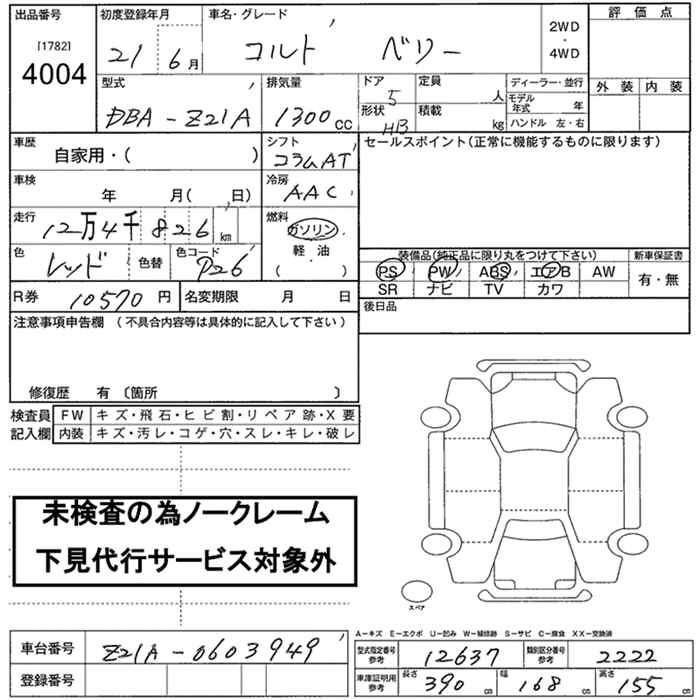 出品番号 初度登録年月 車名・グレード 評価点
[1782] 21 6月 コルト ベリー 2WD・4WD
4004
型式 排気量 ドア 定員 ディーラー・並行 外装 内装
DBA-Z21A 1300cc 5 人 モデル年式 年
形状 積載 ハンドル 左・右
HB kg
車歴 シフト セールスポイント(正常に機能するものに限ります)
自家用・( ) コラムAT
車検 冷房
年 月( 日) AAC
走行 燃料
12万4千826km ガソリン
軽油
・
( )
色 色替 色コード
レッド P26
装備品(純正品に限り丸をつけて下さい) 新車保証書
PS PW ABS エアB AW 有・無
SR ナビ TV カワ
R券 10570円 名変期限 月 日 後日品
注意事項申告欄 (不具合内容等は具体的に記入して下さい)
修復歴 有〔箇所 〕
検査員 FW キズ・飛石・ヒビ割・リペア跡・X要
記入欄 内装 キズ・汚レ・コゲ・穴・スレ・キレ・破レ
未検査の為ノークレーム
下見代行サービス対象外
スペア
A-キズ E-エクボ U-凹み W-補修跡 S-サビ C-腐食 XX-交換済
車台番号 Z21A-0603949 型式指定番号 参考 12637 類別区分番号 参考 2222
登録番号 車庫証明用 参考 長さ 390cm 幅 168cm 高さ 155cm